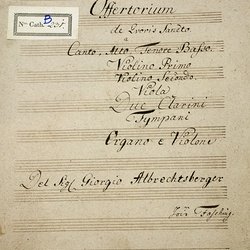 Offertorium
de Sancto
a
Canto, Alto, Tenore Basso.
Violino Primo
Violino Secondo
Viola
Due Clarini
Tympani
Organo e Violone
Del Sig Giorgio Albrechtsberger